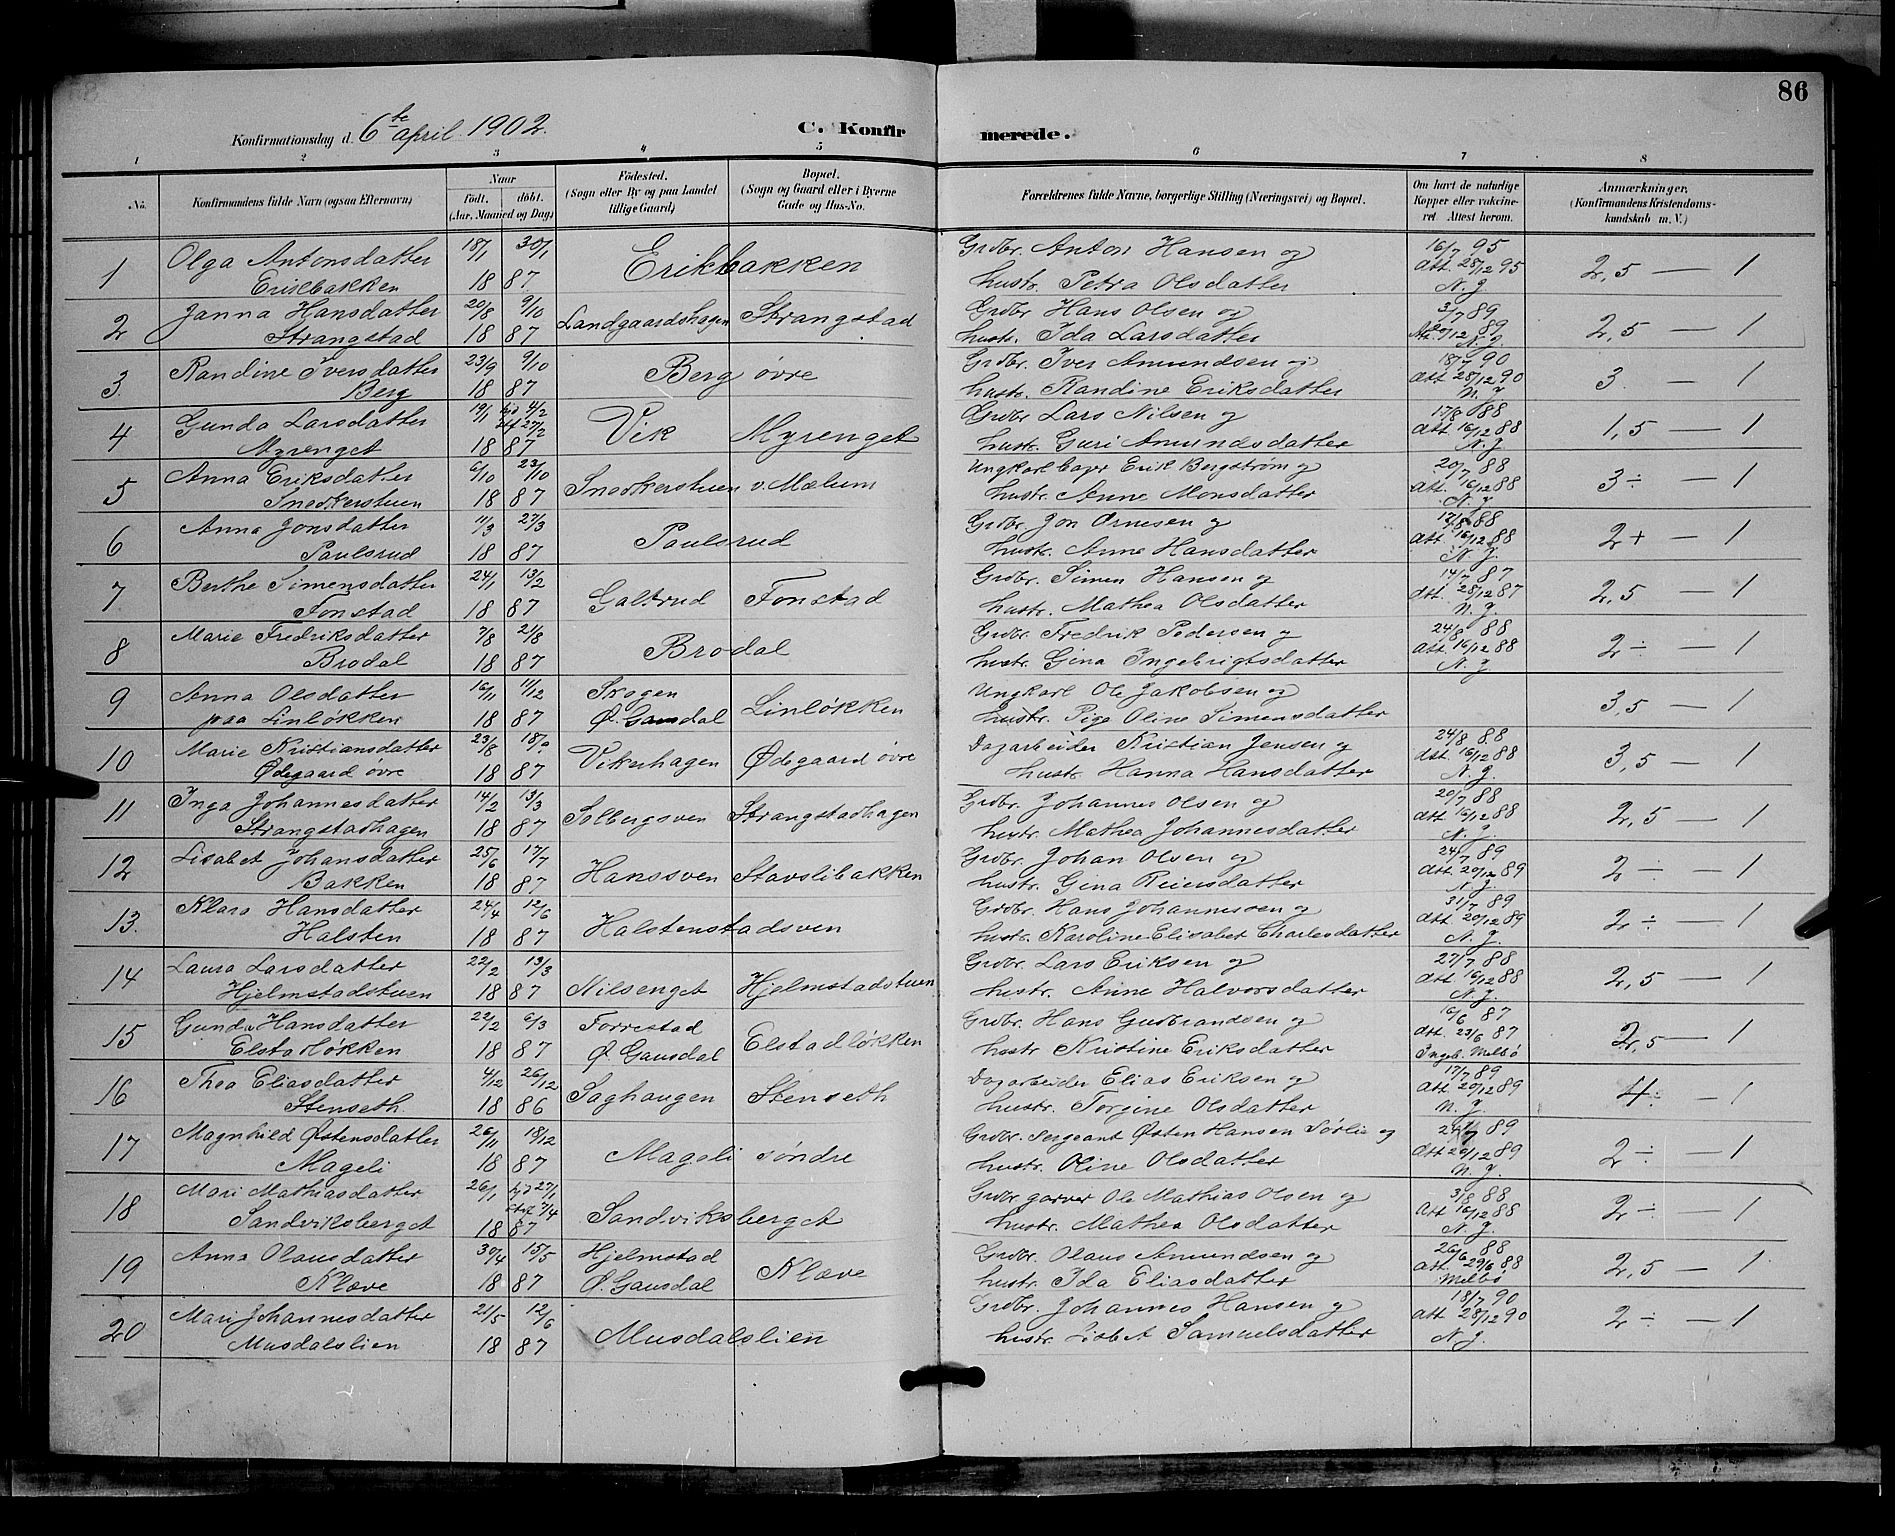 86
Konfirmationsdag d. 6te april 1902.
C. Konfirmerede.
1 2 3 4 5 6 7 8
No.
Konfirmandens fulde Navn (ogsaa Efternavn)
Naar
født. døbt.
(Aar, Maaned og Dag)
Fødested.
(Sogn eller By og paa Landet
tillige Gaard)
Bopæl.
(Sogn og Gaard eller i Byerne
Gade og Hus-No.
Forældrenes fulde Navne, borgerlige Stilling (Næringsvei) og Bopæl.
Om havt de naturlige
Kopper eller vakcine-
ret. Attest herom.
Anmærkninger.
(Konfirmandens Kristendoms-
kundskab m. V.)
1 Olga Antonsdatter 18/1 30/1 Erikbakken Grdbr. Anton Hansen og 16/7 95
Erikbakken 18 87 hustr. Petra Olsdatter Att. 28/12 95 N.J. 2,5 — 1
2 Janna Hansdatter 20/8 9/10 Landgaardshagen Strangstad Grdbr Hans Olsen og 3/7 89
Strangstad 18 87 hustr. Ida Larsdatter Att. 20/12 89 N.J. 2,5 — 1
3. Randine Iversdatter 23/9 9/10 Berg øvre Grdbr. Iver Amundsen og 18/7 90
Berg 18 87 hustr. Randine Eriksdatter Att 28/12 90 N.J. 3 — 1
4 Gunda Larsdatter 19/1 hjd 4/2 Stf 27/2 Vik Myrenget Grdbr Lars Nilsen og 17/8 88
Myrenget 18 87 hustr. Guri Amundsdatter Att 16/12 88 N.J. 1,5 — 1
5 Anna Eriksdatter 6/10 23/10 Snedkerstuen v. Mælum Ungkarl Erik Bergstrøm og 20/7 88
Snedkerstuen 18 87 hustr. Anne Monsdatter Att. 16/12 88 N.J. 3 ÷ — 1
6 Anna Jonsdatter 11/3 27/3 Paulsrud Grdbr. Jon Arnesen og 17/8 88
Paulsrud 18 87 hustr. Anne Hansdatter Att 16/12 88 N.J. 2 + — 1
7 Berthe Simensdatter 24/1 13/2 Galtrud Fonstad Grdbr. Simen Hansen og 14/7 87
Fonstad 18 87 hustr. Mathea Olsdatter Att. 28/12 87 N.J. 2,5 — 1
8 Marie Fredriksdatter 7/8 21/8 Brodal Grdbr. Fredrik Pedersen og 24/8 88
Brodal 18 87 hustr. Gina Ingebrigtsdatter Att 16/12 88 N.J. 2 ÷ — 1
9 Anna Olsdatter 16/11 11/12 Skogen Linløkken Ungkarl Ole Jakobsen og
paa Linløkken 18 87 Ø. Gausdal hustr. Pige Oline Simensdatter 3,5 — 1
10 Marie Kristiansdatter 23/8 Vikerhagen Ødegaard øvre Dagarbeider Kristian Jensen og 24/8 88
Ødegaard øvre 18 87 hustr. Hanna Hansdatter Att 16/12 88 N.J. 3,5 — 1
11 Inga Johannesdatter 14/2 13/3 Solbergsven Strangstadhagen Grdbr. Johannes Olsen og 20/7 88
Strangstadhagen 18 87 hustr. Mathea Johannesdatter Att 16/12 88 N.J. 2,5 — 1
12 Lisabet Johansdatter 25/6 17/7 Hanssven Stavslibakken Grdbr. Johan Olsen og 24/7 89
Bakken 18 87 hustr. Gina Reiersdatter Att. 20/12 89 N.J. 2 ÷ — 1
13. Klara Hansdatter 24/4 12/6 Halstenstadsven Grdbr. Hans Johannessen og 31/7 89
Halsten 18 87 hustr. Karoline Elisabet Charlesdatter Att. 20/12 89 N.J. 2 ÷ — 1
14 Laura Larsdatter 22/2 13/3 Nilsenget Hjelmstadstuen Grdbr. Lars Eriksen og 27/7 88
Hjelmstadstuen 18 87 hustr. Anne Halvorsdatter Att 16/12 88 N.J. 2,5 — 1
15 Gunda Hansdatter 22/2 6/3 Forrestad Elstadløkken Grdbr. Hans Gudbrandsen og 16/6 87
Elstadløkken 18 87 Ø. Gausdal hustr Kristine Eriksdatter Att. 23/6 87 Ingeb. Melbø 2,5 — 1
16 Thea Eliasdatter 4/12 26/12 Saghaugen Stenseth Dagarbeider Elias Eriksen og 17/7 89
Stenseth. 18 86 hustr. Torgine Olsdatter Att 20/12 89 N.J. 4 ÷ — 1
17 Magnhild Østensdatter 26/11 18/12 Mageli søndre Grdbr. Sergeant Østen Hansen Sørlie og 24/7 89
Mageli 18 87 hustr. Oline Olsdatter Att 20/12 89 N.J. 2 ÷ — 1
18 Mari Mathiasdatter 26/1 hjd 27/1 Stf 7/4 Sandviksberget Grdbr garver Ole Mathias Olsen og 3/8 88
Sandviksberget 18 87 hustr. Mathea Olsdatter Att 16/12 88 N.J. 2 ÷ — 1
19 Anna Olausdatter 30/4 15/5 Hjelmstad Klæve Grdbr. Olaus Amundsen og 26/6 88
Klæve 18 87 Ø. Gausdal hustr. Ida Eliasdatter Att. 29/6 88 Melbø 2,5 — 1
20 Mari Johannesdatter 21/5 12/6 Musdalslien Grdbr. Johannes Hansen og 18/7 90
Musdalslien 18 87 hustr. Lisbet Samuelsdatter Att 28/12 90 N.J. 2 ÷ — 1